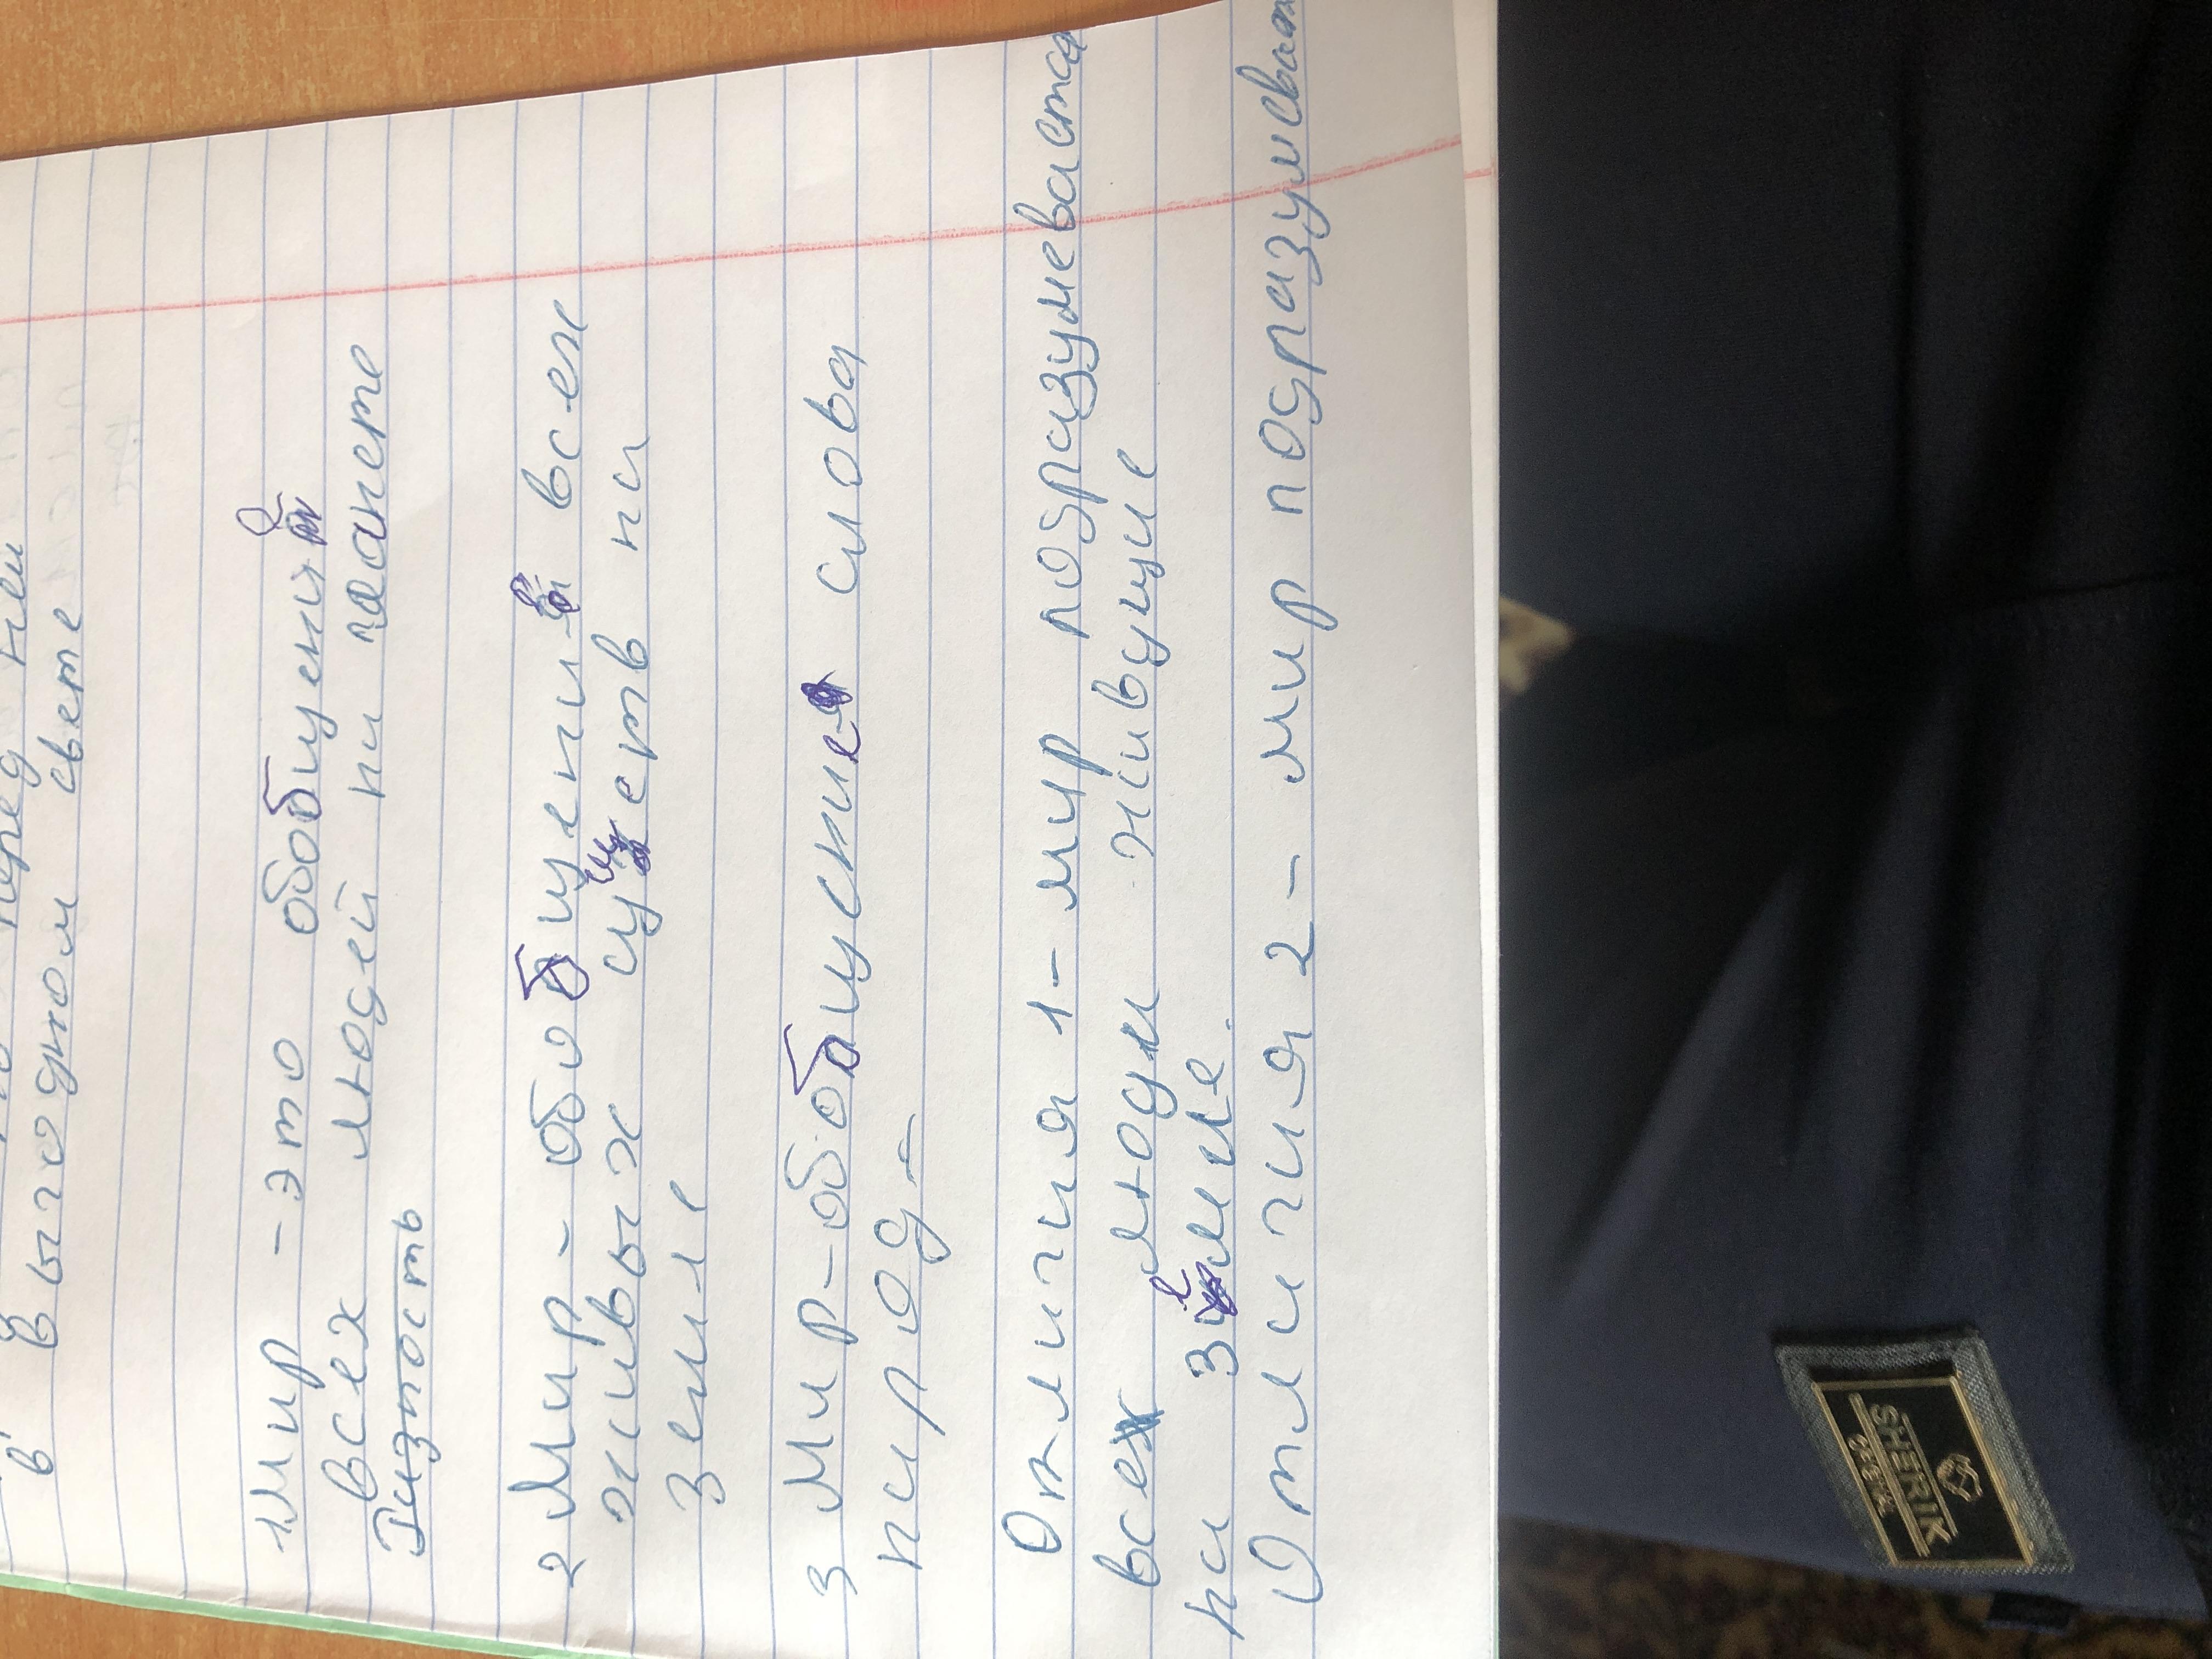 перед
в выгодном свете
1 Мир - это обобщение
всех людей на планете
Разность
2 Мир - обобщение всех
живых существ на
земле
3 Мир - обобщение слова
народ =
Отличия 1 - мир подразумевается
все люди живущие
на земле.
Отличия 2 - мир подразумевает
SHERIK